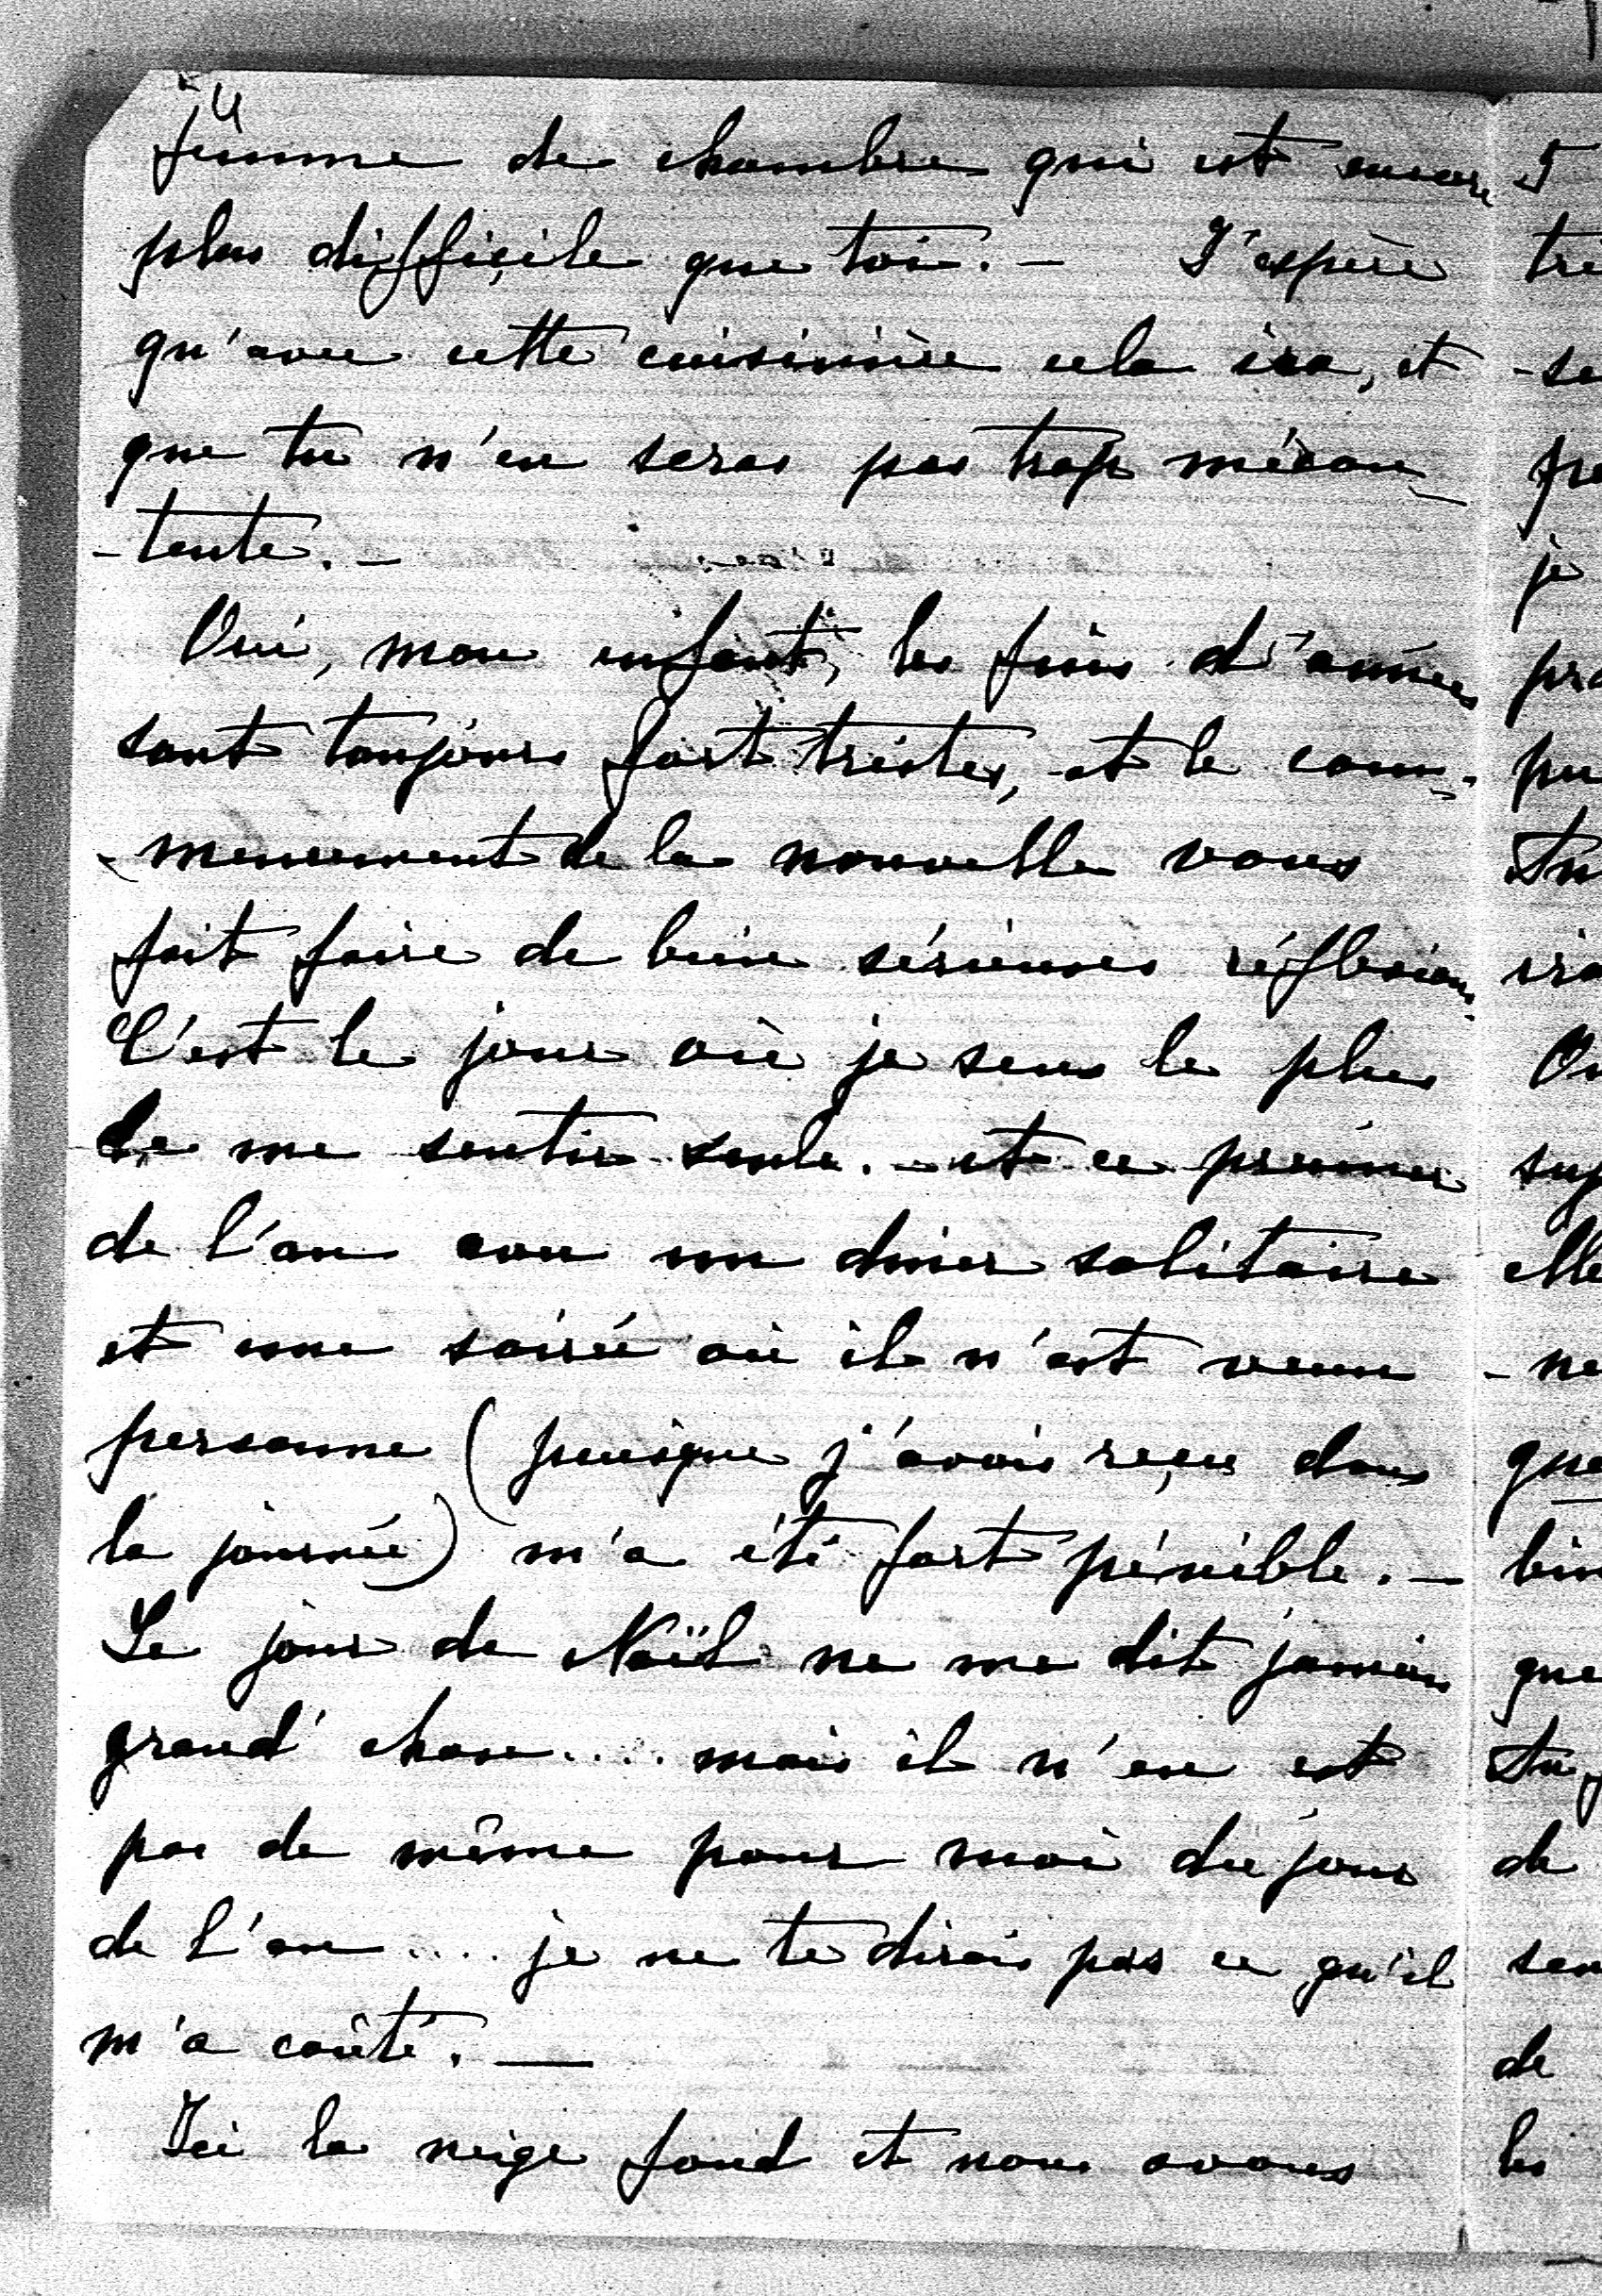 4
femme de chambre qui est encore
plus difficile que toi. — J'espère
qu'avec cette cuisinière cela ira, et
que tu n'en seras pas trop mécon-
-tente. —
Oui, mon enfant, les fins d'années
sont toujours fort tristes, et le com-
-mencement de la nouvelle vous
fait faire de bien sérieuses réflexions
C'est le jour où je sens le plus
de me sentir seule. — et ce premier
de l'an avec un diner solitaire
et une soirée où il n'est venu
personne (puisque j'avais reçu dans
la journée) m'a été fort pénible. —
Le jour de Noël ne me dit jamais
grand' chose.... mais il n'en est
pas de même pour moi du jour
de l'an.... je ne te dirais pas ce qu'il
m'a coûté. —
Ici la neige fond et nous avons
5
je
de
de
les